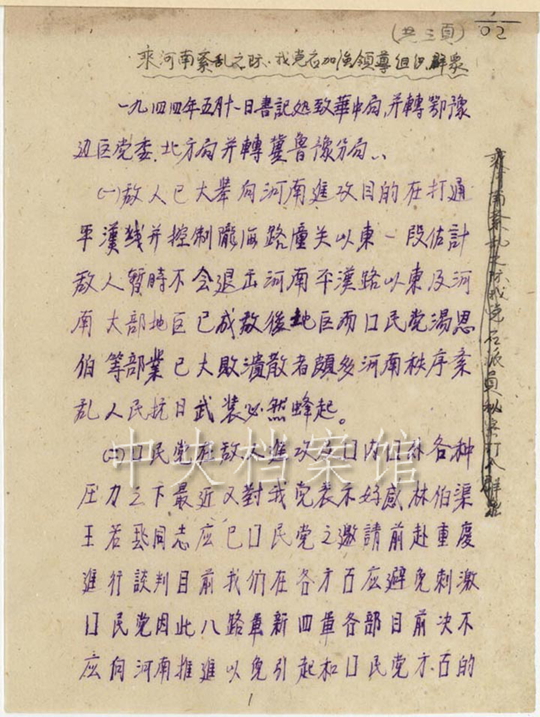 (共三頁)
02
乘河南紊乱之际,我党应加强领导组织群众
一九四四年五月十一日書記処致華中局,并轉鄂豫
边区党委,北方局并轉冀魯豫分局、
(一)敌人已大舉向河南進攻目的在打通
平漢线并控制隴海路潼关以東一段估計
敌人暫時不会退出河南平漢路以東及河
南大部地区已成敌後地区而囗民党湯恩
伯等部業已大敗潰散者頗多河南秩序紊
乱人民抗日武装必然蜂起。
(二)囗民党在敌人進攻及囗内囗外各种
压力之下最近又對我党表示好感林伯渠
王若飛同志应已囗民党之邀請前赴重慶
進行談判目前我們在各方面应避免刺激
囗民党因此八路軍新四軍各部目前决不
应向河南推進以免引起和囗民党方面的
1
乘河南紊乱之际我党应派員秘密打入群众
中央档案馆